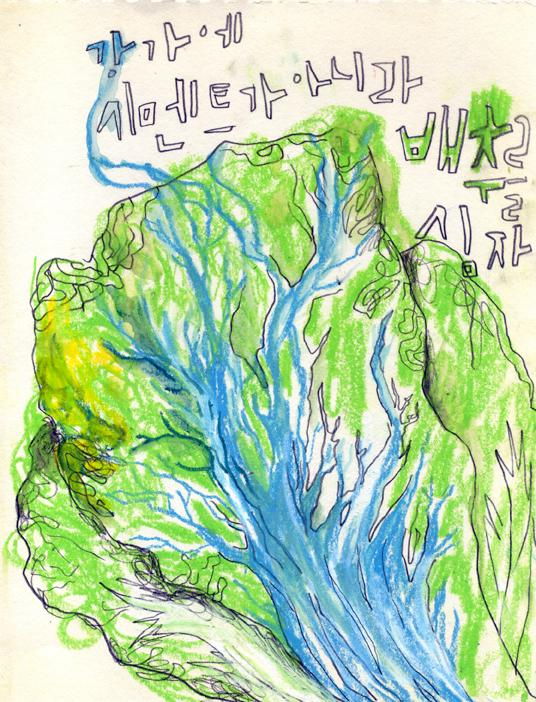 강가에
시멘트가 아니라
배추를
심자